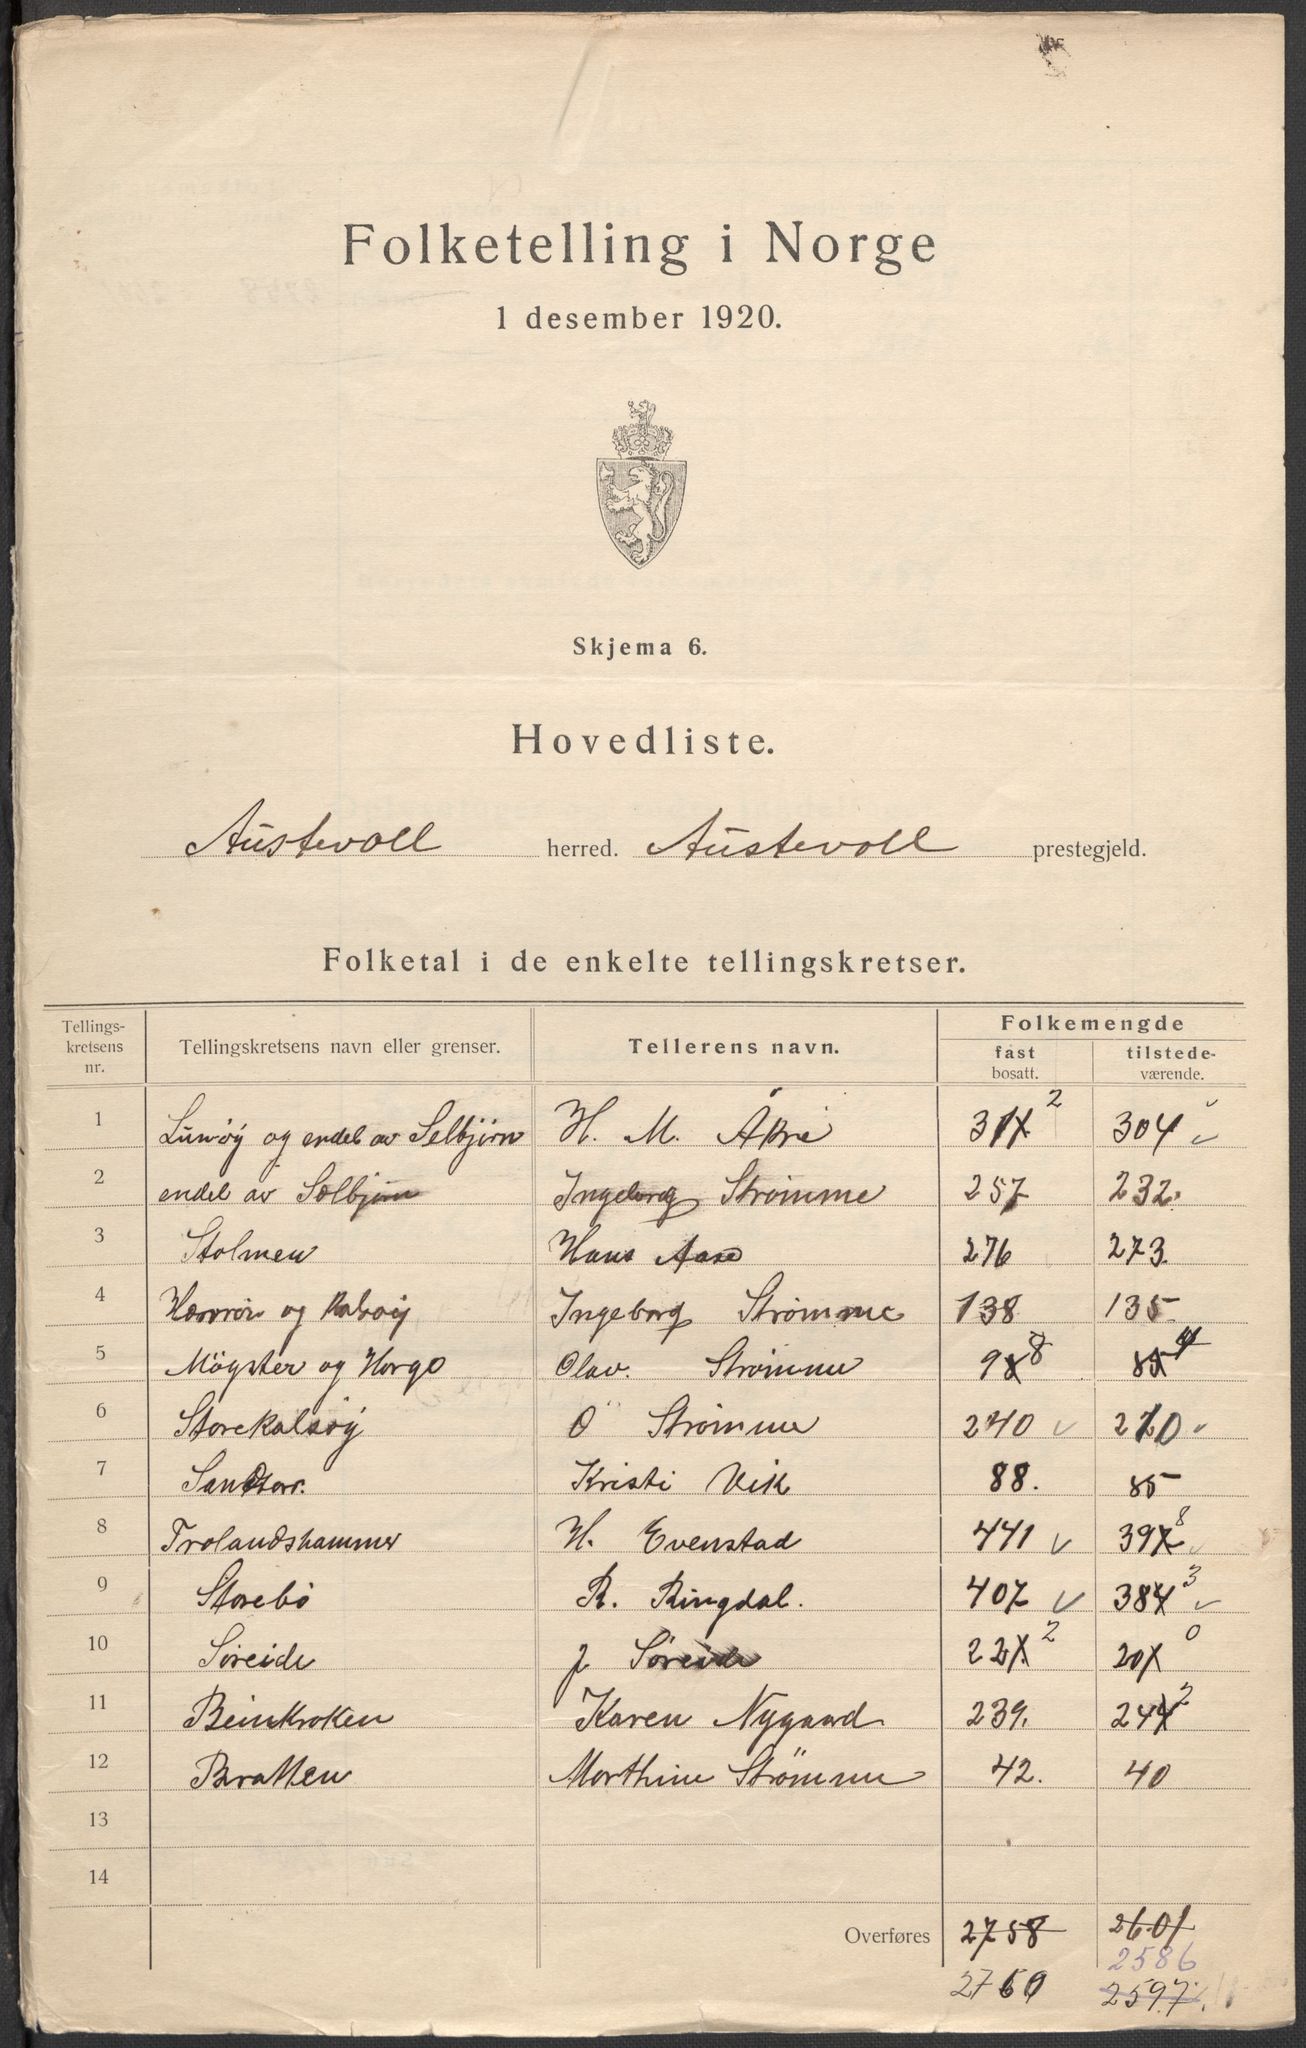 Folketelling i Norge
1 desember 1920.
Skjema 6.
Hovedliste.
Austevoll herred. Austevoll prestegjeld.
Folketal i de enkelte tellingskretser.
Tellings-kretsens nr. Tellingskretsens navn eller grenser. Tellerens navn. Folkemengde
fast bosatt. tilstede-værende.
1 og endel av Selbjörn H. M. Åkre 312 304
2 endel av Selbjörn Ingeborg Strømme 257 232.
3 Stolmen Hans Aase 276 273.
4 og Kalvöy Ingeborg Strömme 138 135
5 Mögster og Horgo Olav. Strömme 98 84
6 Storekalsöy O Strömme 240 210
7 Kristi Vik 88. 85
8 Trolandshammer H. Evenstad 441 398
9 Storebö R. Ringdal. 407 383
10 Söreide J Söreide 222 200
11 Beinkroken Karen Nygaard 239. 242
12 Bratten Morthine Strömme 42. 40
13
14
Overføres 2758 2601
2586
2760 2597